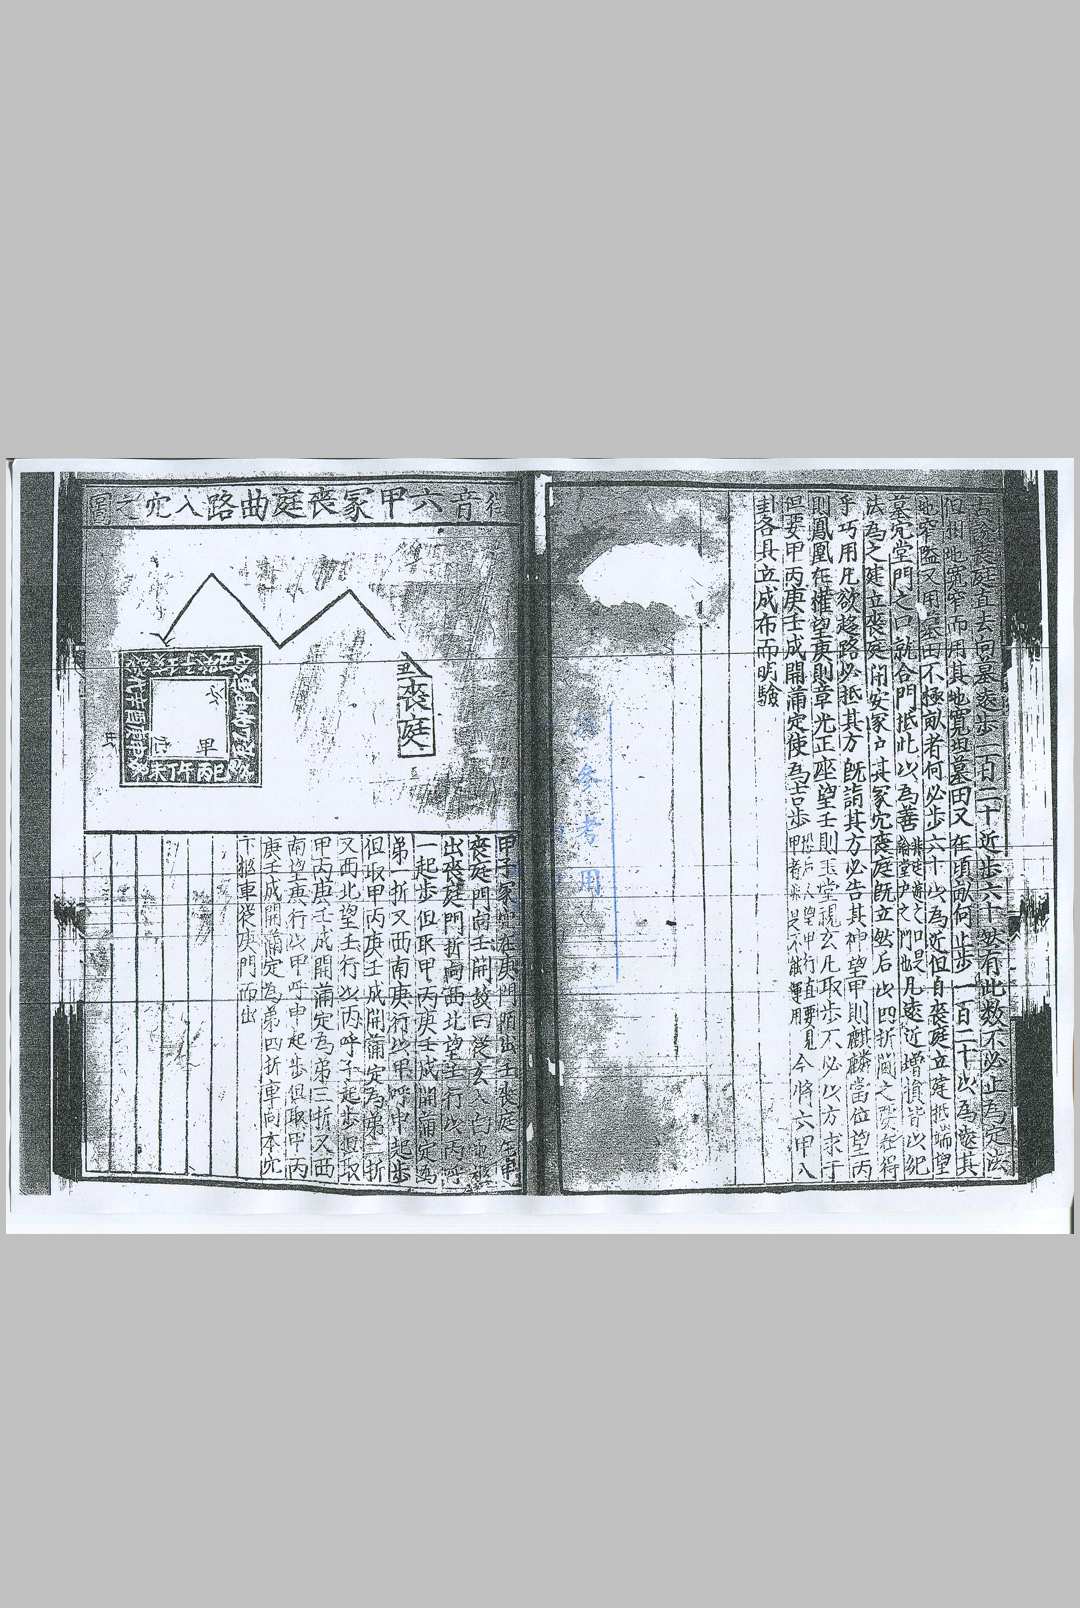 古說喪庭直去向墓遠步一百二十近步六十然有此數不必止為定法
但相地寬窄而用其地寬坦墓田又在頃畝何止步一百二十以為遠其
地窄隘又用墓田不極畝者何必步六十以為近但自喪庭立建抵端望
墓穴堂門之口就合門抵此以為善
凡遠近增損皆以
法為之建立喪庭閇安冢戶其冢穴喪庭既立然后以四折圖之
得
乎巧用凡欲趍路必抵其方既詣其方必告其神望甲則麒麟當位望丙
則鳳凰在權望庚則章光正座望壬則玉堂視玄凡取步不必以方求于
但要甲丙庚壬成開蒲定使為吉步
望甲行直要見
今將六甲八
卦各具立成布而明驗
參考用
音六甲冢喪庭曲路入穴之圖
喪庭
巳丙午丁未
甲子冢
在庚門
出壬喪庭
喪庭門向壬開故曰
出喪庭門折向西北望壬行以丙呼
一起步但取甲丙庚壬成開蒲定為
弟一折又西南庚行以甲呼申起步
但取甲丙庚壬成開蒲定為弟二折
又西北望壬行以丙呼子起步但取
甲丙庚壬成開蒲定為弟三折又西
南望庚行以甲呼申起步但取甲丙
庚壬成開蒲定為弟四折車向本穴
下軀車從庚門而出